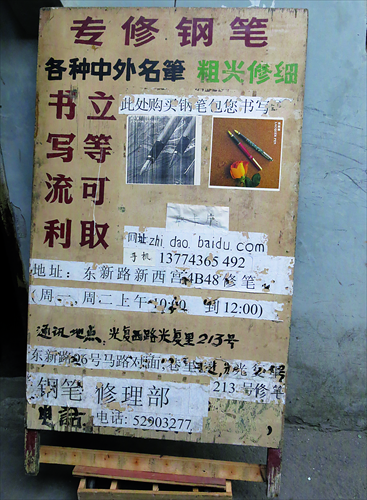 专修钢笔
各种中外名筆 粗尖修细
书立
写等
流可
利取
此处购买钢笔包您书写
网址zhi dao. baidu.com
手机 13774365 492
地址：东新路新西宫4B48修笔
(周一,周二上午10:00 到12:00)
通讯地点,光复西路光复里213号
东新路26号马路对面,巷里
213号修笔
钢笔 修理部
电话: 52903277